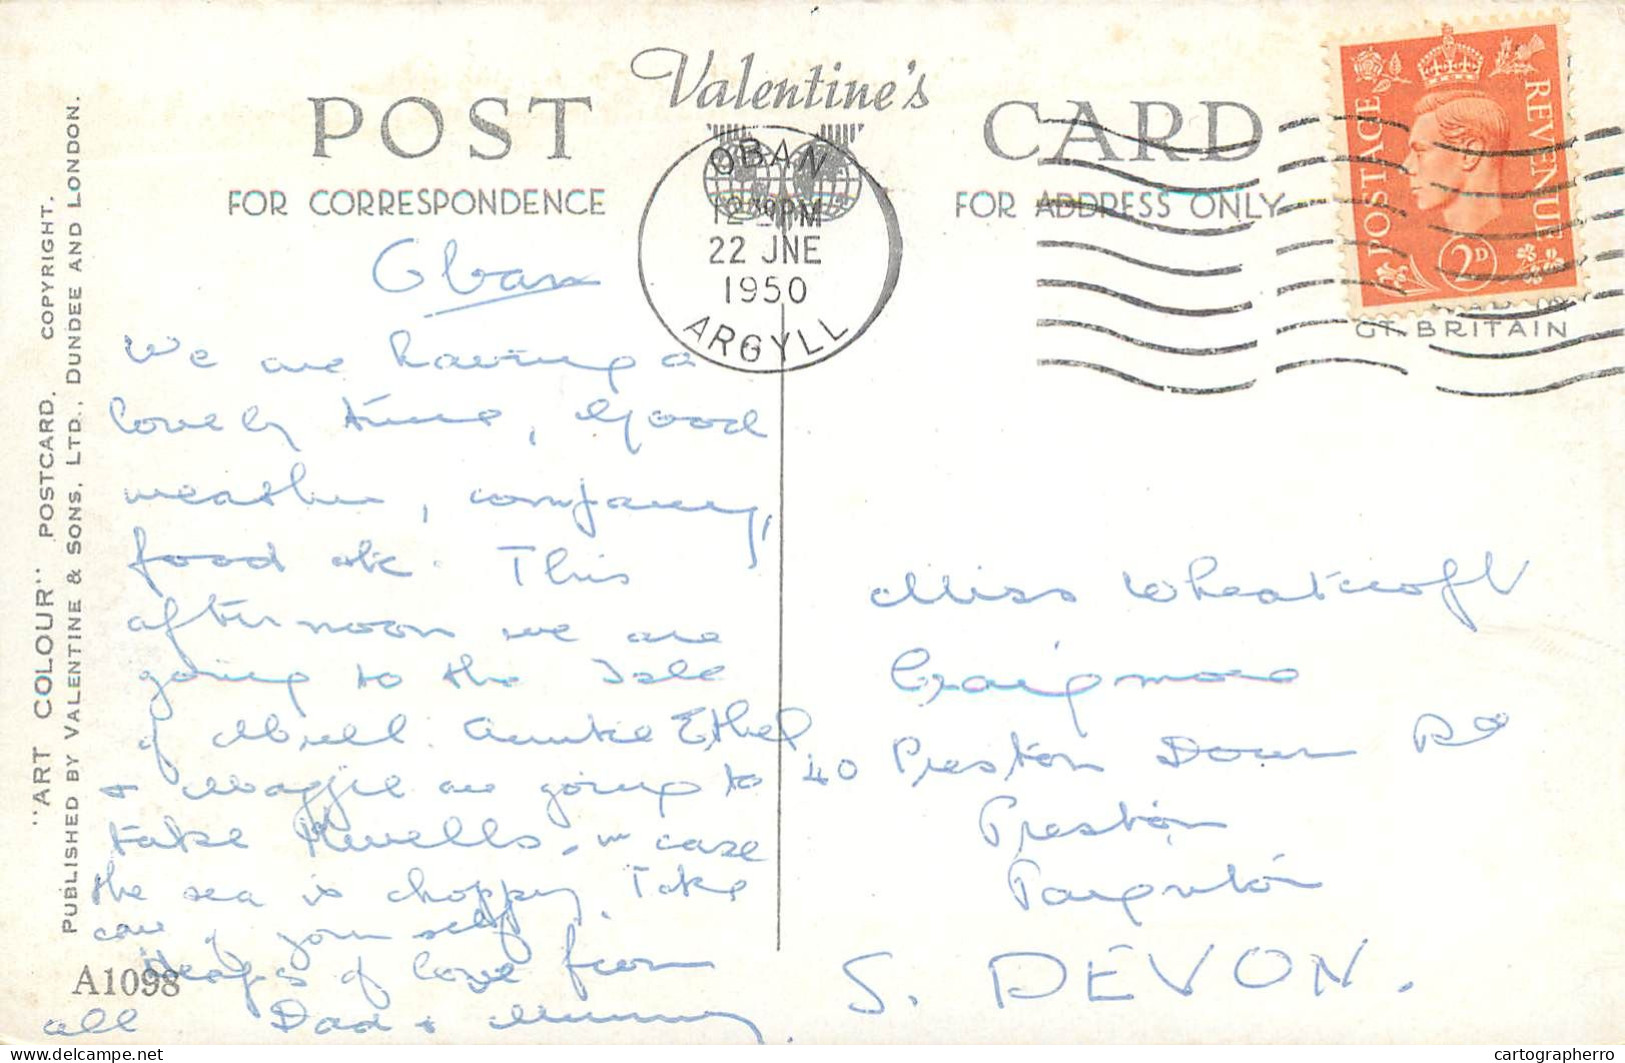 "ART COLOUR" POSTCARD. COPYRIGHT.
PUBLISHED BY VALENTINE & SONS, LTD., DUNDEE AND LONDON.
Valentine's
POST CARD
FOR CORRESPONDENCE
FOR ADDRESS ONLY
OBAN
12 PM
22 JNE
1950
ARGYLL
POSTAGE
REVENUE
2D
GT. BRITAIN
Oban
We are having a
lovely time, Good
weather, company,
food etc. This
afternoon we are
going to the Isle
of Mull. Auntie Ethel
& Maggie are going to
take Kwells in case
the sea is choppy. Take
care of yourself
Heaps of love from
all Dad & Mummy.
Miss Wheatcroft
Craigmore
40 Preston Down Rd
Preston
Paignton
S. DEVON.
A1098
cartographerro
delcampe.net